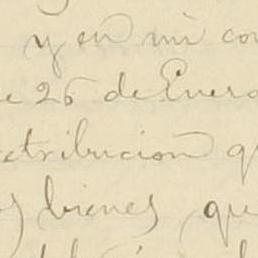 y en mi con
e 26 de Enero
tribucion q
s bienes que